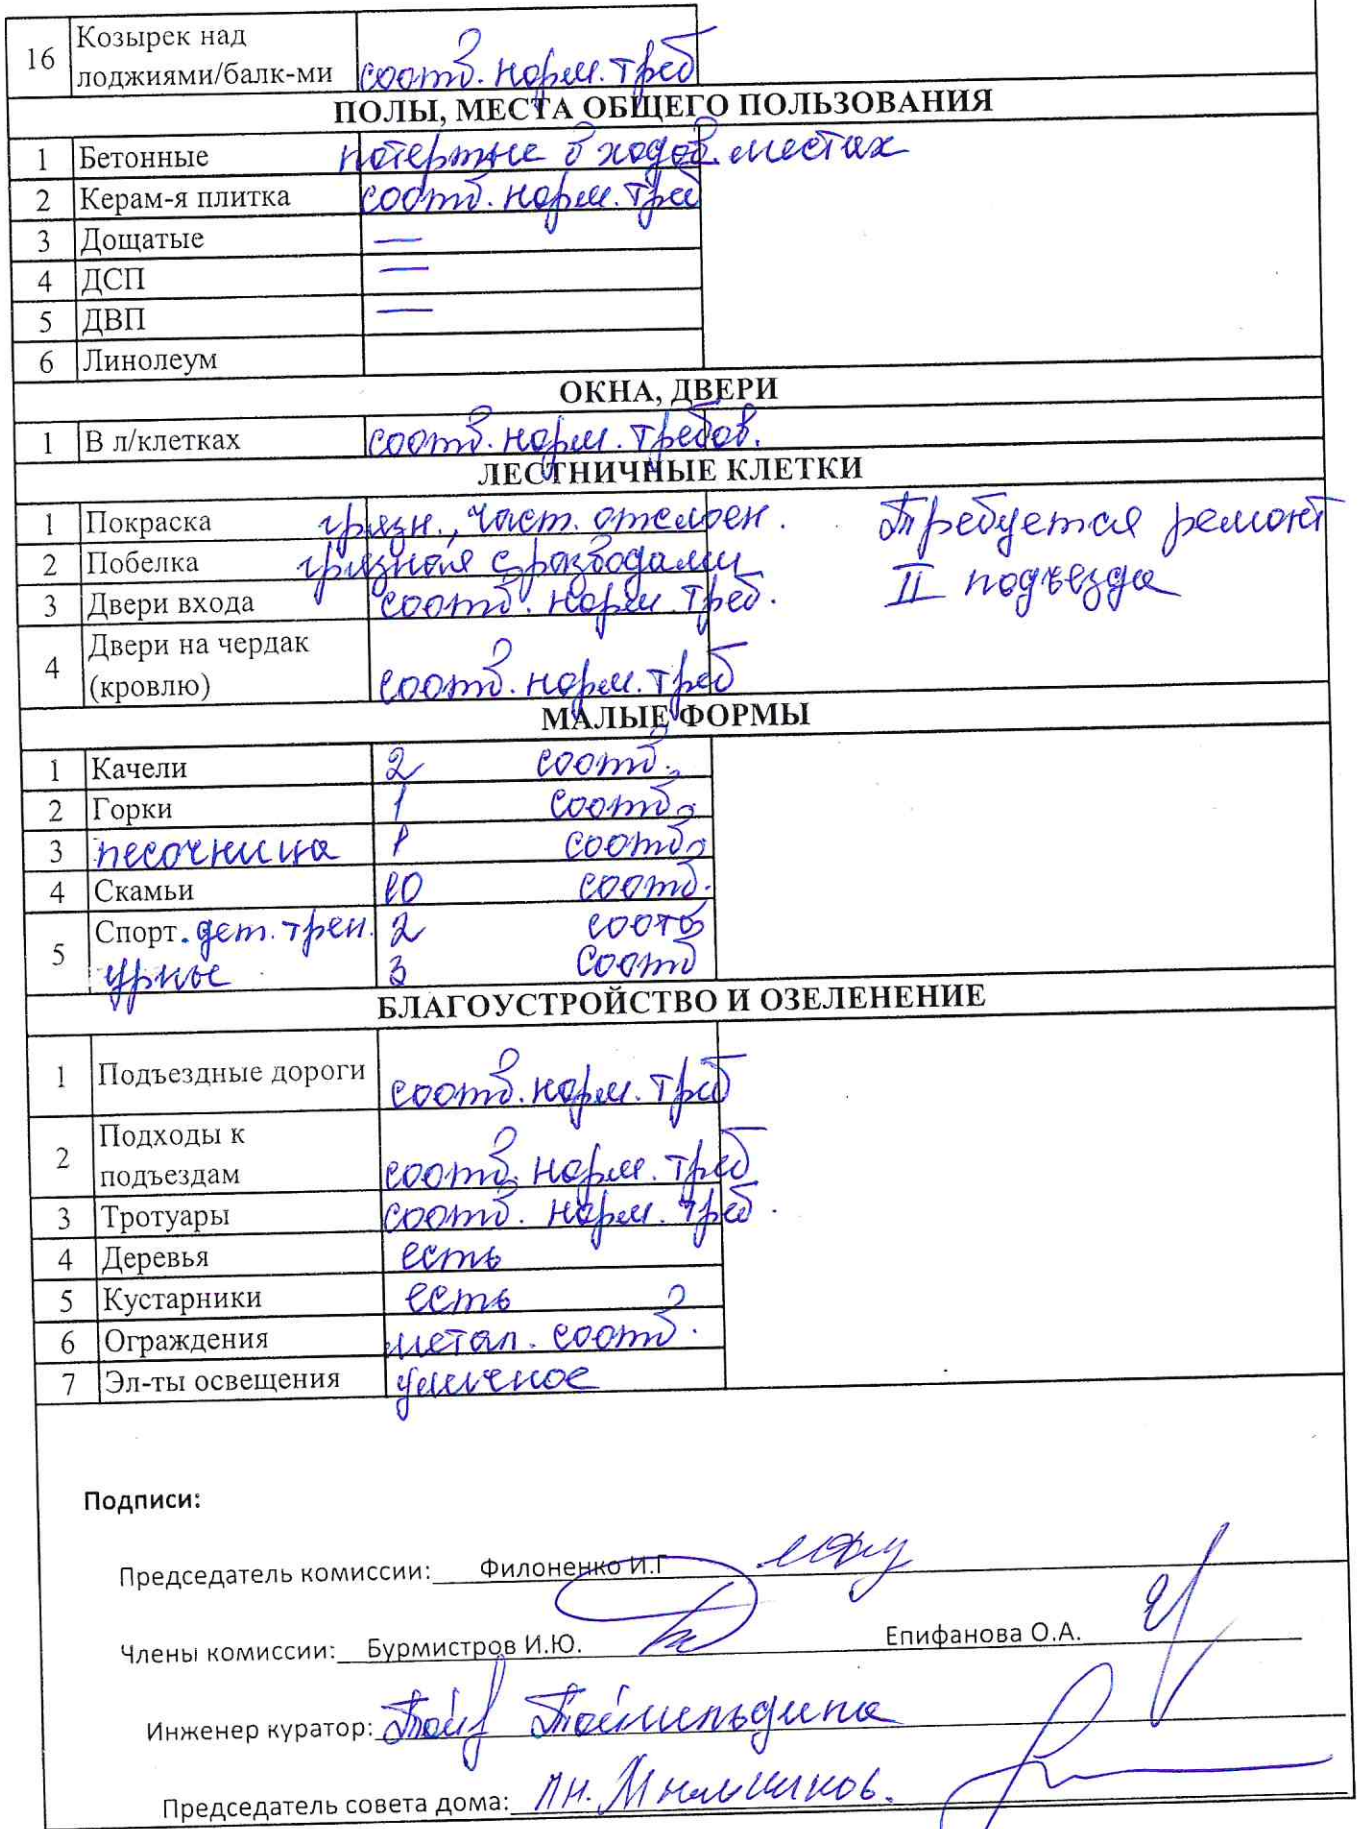 16 Козырек над
лоджиями/балк-ми соотв. норм. треб
ПОЛЫ, МЕСТА ОБЩЕГО ПОЛЬЗОВАНИЯ
1 Бетонные потертые в ходов. местах
2 Керам-я плитка соотв. норм. треб
3 Дощатые —
4 ДСП —
5 ДВП —
6 Линолеум
ОКНА, ДВЕРИ
1 В л/клетках соотв. норм. требов.
ЛЕСТНИЧНЫЕ КЛЕТКИ
1 Покраска грязн., част. отслоен. Требуется ремонт
2 Побелка грязная с разводами II подъезда
3 Двери входа соотв. норм. треб.
4 Двери на чердак
(кровлю) соотв. норм. треб
МАЛЫЕ ФОРМЫ
1 Качели 2 соотв.
2 Горки 1 соотв.
3 песочница 1 соотв.
4 Скамьи 10 соотв.
5 Спорт. дет. трен. 2 соотв
урны 3 соотв
БЛАГОУСТРОЙСТВО И ОЗЕЛЕНЕНИЕ
1 Подъездные дороги соотв. норм. треб
2 Подходы к
подъездам соотв. норм. треб
3 Тротуары соотв. норм. треб.
4 Деревья есть
5 Кустарники есть
6 Ограждения метал. соотв.
7 Эл-ты освещения уличное
Подписи:
Председатель комиссии: Филоненко И.Г
Члены комиссии: Бурмистров И.Ю. Епифанова О.А.
Инженер куратор:
Председатель совета дома: